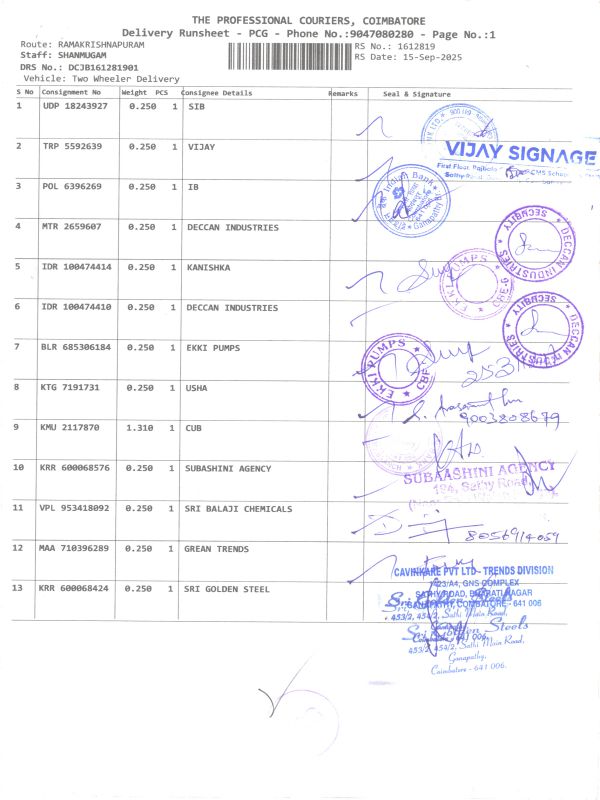 THE PROFESSIONAL COURIERS, COIMBATORE
Delivery Runsheet - PCG - Phone No.:9047080280 - Page No.:1
Route: RAMAKRISHNAPURAM
RS No.: 1612819
Staff: SHANMUGAM
RS Date: 15-Sep-2025
DRS No.: DCJB161281901
Vehicle: Two Wheeler Delivery
S No Consignment No Weight PCS Consignee Details Remarks Seal & Signature
1 UDP 18243927 0.250 1 SIB
2 TRP 5592639 0.250 1 VIJAY
VIJAY SIGNAGE
First Floor,
3 POL 6396269 0.250 1 IB
Indian Bank
Ganapathy
4 MTR 2659607 0.250 1 DECCAN INDUSTRIES
DECCAN INDUSTRIES SECURITY
5 IDR 100474414 0.250 1 KANISHKA
EKKI PUMPS
6 IDR 100474410 0.250 1 DECCAN INDUSTRIES
DECCAN INDUSTRIES SECURITY
7 BLR 685306184 0.250 1 EKKI PUMPS
EKKI PUMPS CBE
8 KTG 7191731 0.250 1 USHA
9003808679
9 KMU 2117870 1.310 1 CUB
10 KRR 600068576 0.250 1 SUBASHINI AGENCY
SUBAASHINI AGENCY
194, Sathy Road,
11 VPL 953418092 0.250 1 SRI BALAJI CHEMICALS
8056914059
12 MAA 710396289 0.250 1 GREAN TRENDS
CAVINKARE PVT LTD- TRENDS DIVISION
1423/A4, GNS COMPLEX
SATHY ROAD, BHARATI NAGAR
GANAPATHY, COIMBATORE - 641 006
13 KRR 600068424 0.250 1 SRI GOLDEN STEEL
Sri Golden Steels
453/2, 454/2, Sathi Main Road,
Sri Golden Steels
453/2, 454/2, Sathi Main Road,
Ganapathy,
Coimbatore - 641 006.